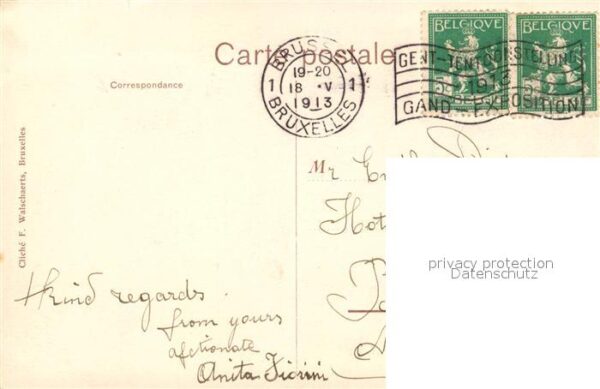 BELGIQUE BELGIQUE
Carte postale
BRUSSEL
19-20
1 18 V 1
1913
BRUXELLES
GENT-TENTOONSTELLING
1913
GAND-EXPOSITION
Correspondance
Cliché F. Walschaerts, Bruxelles
Mr
Hot
privacy protection
Datenschutz
Kind regards.
from yours
afctionate
Anita Fiorini